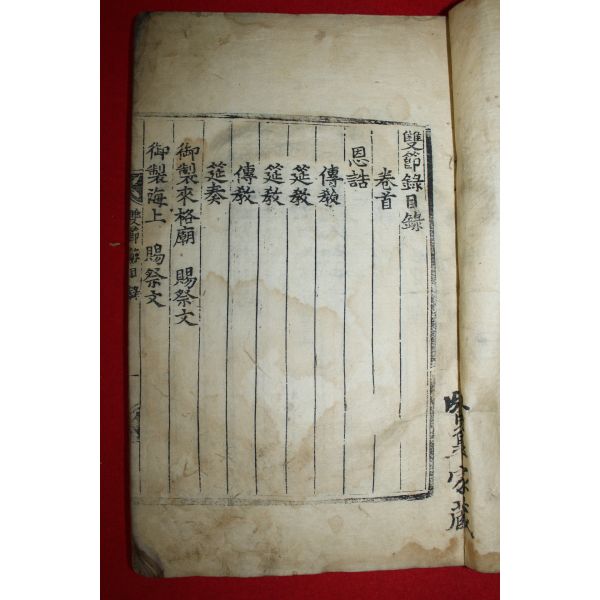 雙節錄目錄
卷首
恩誥
傳敎
筵敎
筵敎
傳敎
筵奏
御製來格廟 賜祭文
御製海上 賜祭文
雙節錄目錄 一
家藏